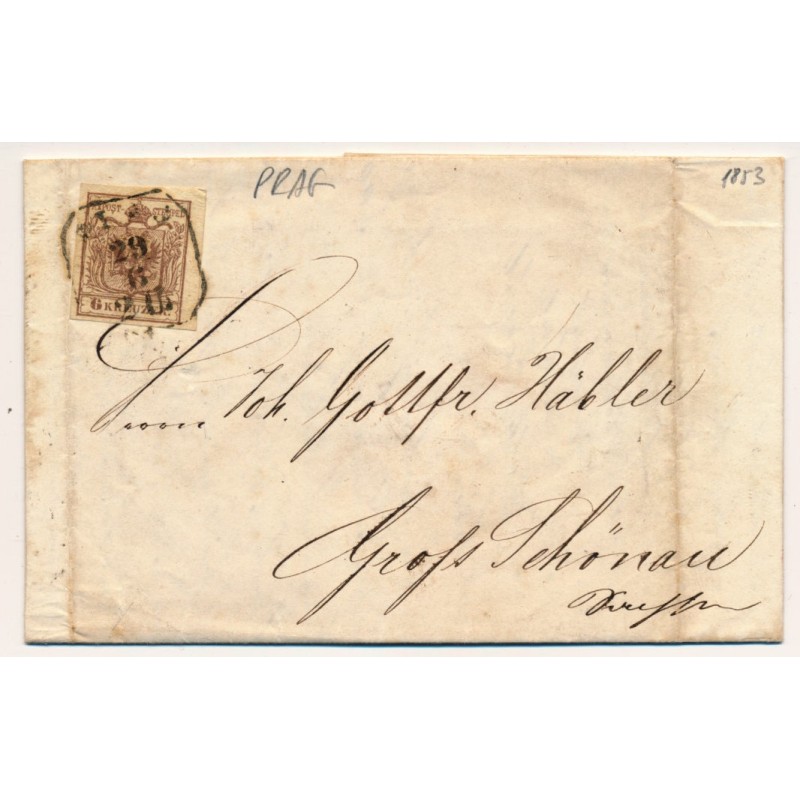 PRAG
1853
29
6
6 KREUZER
Herrn Joh. Gottfr. Häbler
Gross Schönau